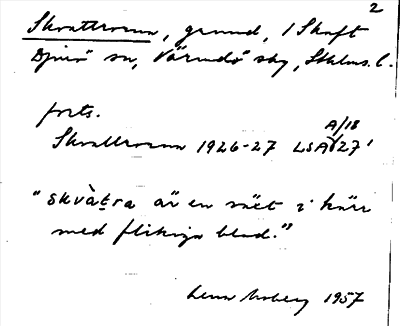 2
Skvattrorna, grund, 1 Skaft
Djurö sn, Värmdö skg, Sthlms l.
forts.
Skvattrorna 1926-27 LSA A/18 27'
"skvàtra är en växt i kärr
med flikiga blad."
Lena Moberg 1957